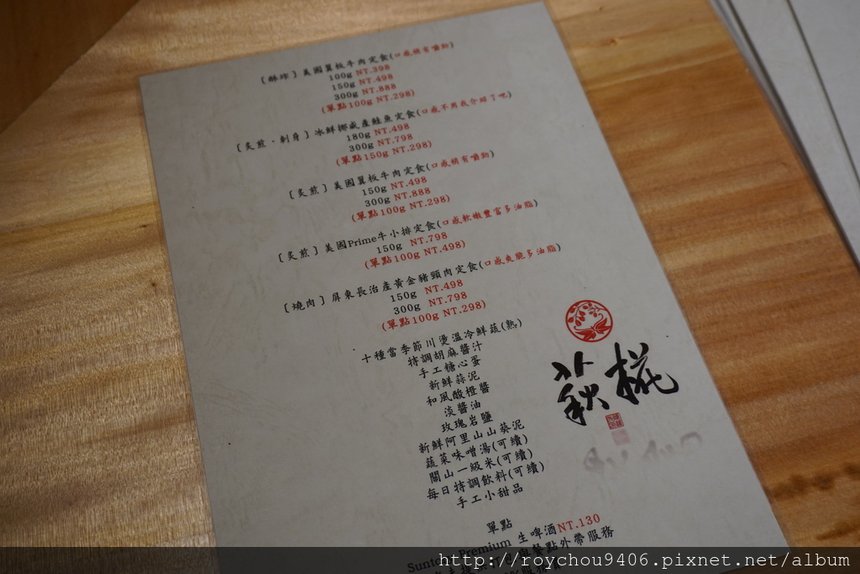 [酥炸]美國翼板牛肉定食(口感稍有嚼勁)
100g NT.398
150g NT.498
300g NT.888
(單點100g NT.298)
[炙煎·刺身]冰鮮挪威產鮭魚定食(口感不用我介紹了吧)
180g NT.498
300g NT.798
(單點150g NT.298)
[炙煎]美國翼板牛肉定食(口感稍有嚼勁)
150g NT.498
300g NT.888
(單點100g NT.298)
[炙煎]美國Prime牛小排定食(口感軟嫩豐富多油脂)
150g NT.798
(單點100g NT.498)
[燒肉]屏東長治產黃金豬頸肉定食(口感爽脆多油脂)
150g NT.498
300g NT.798
(單點100g NT.298)
十種當季節川燙溫冷鮮蔬(熟)
特調胡麻醬汁
手工糖心蛋
新鮮蒜泥
和風酸橙醬
淡醬油
玫瑰岩鹽
新鮮阿里山山葵泥
蔬菜味噌湯(可續)
關山一級米(可續)
每日特調飲料(可續)
手工小甜品
萩椛
單點
Suntory Premium 生啤酒NT.130
餐點外帶服務
http://roychou9406.pixnet.net/album